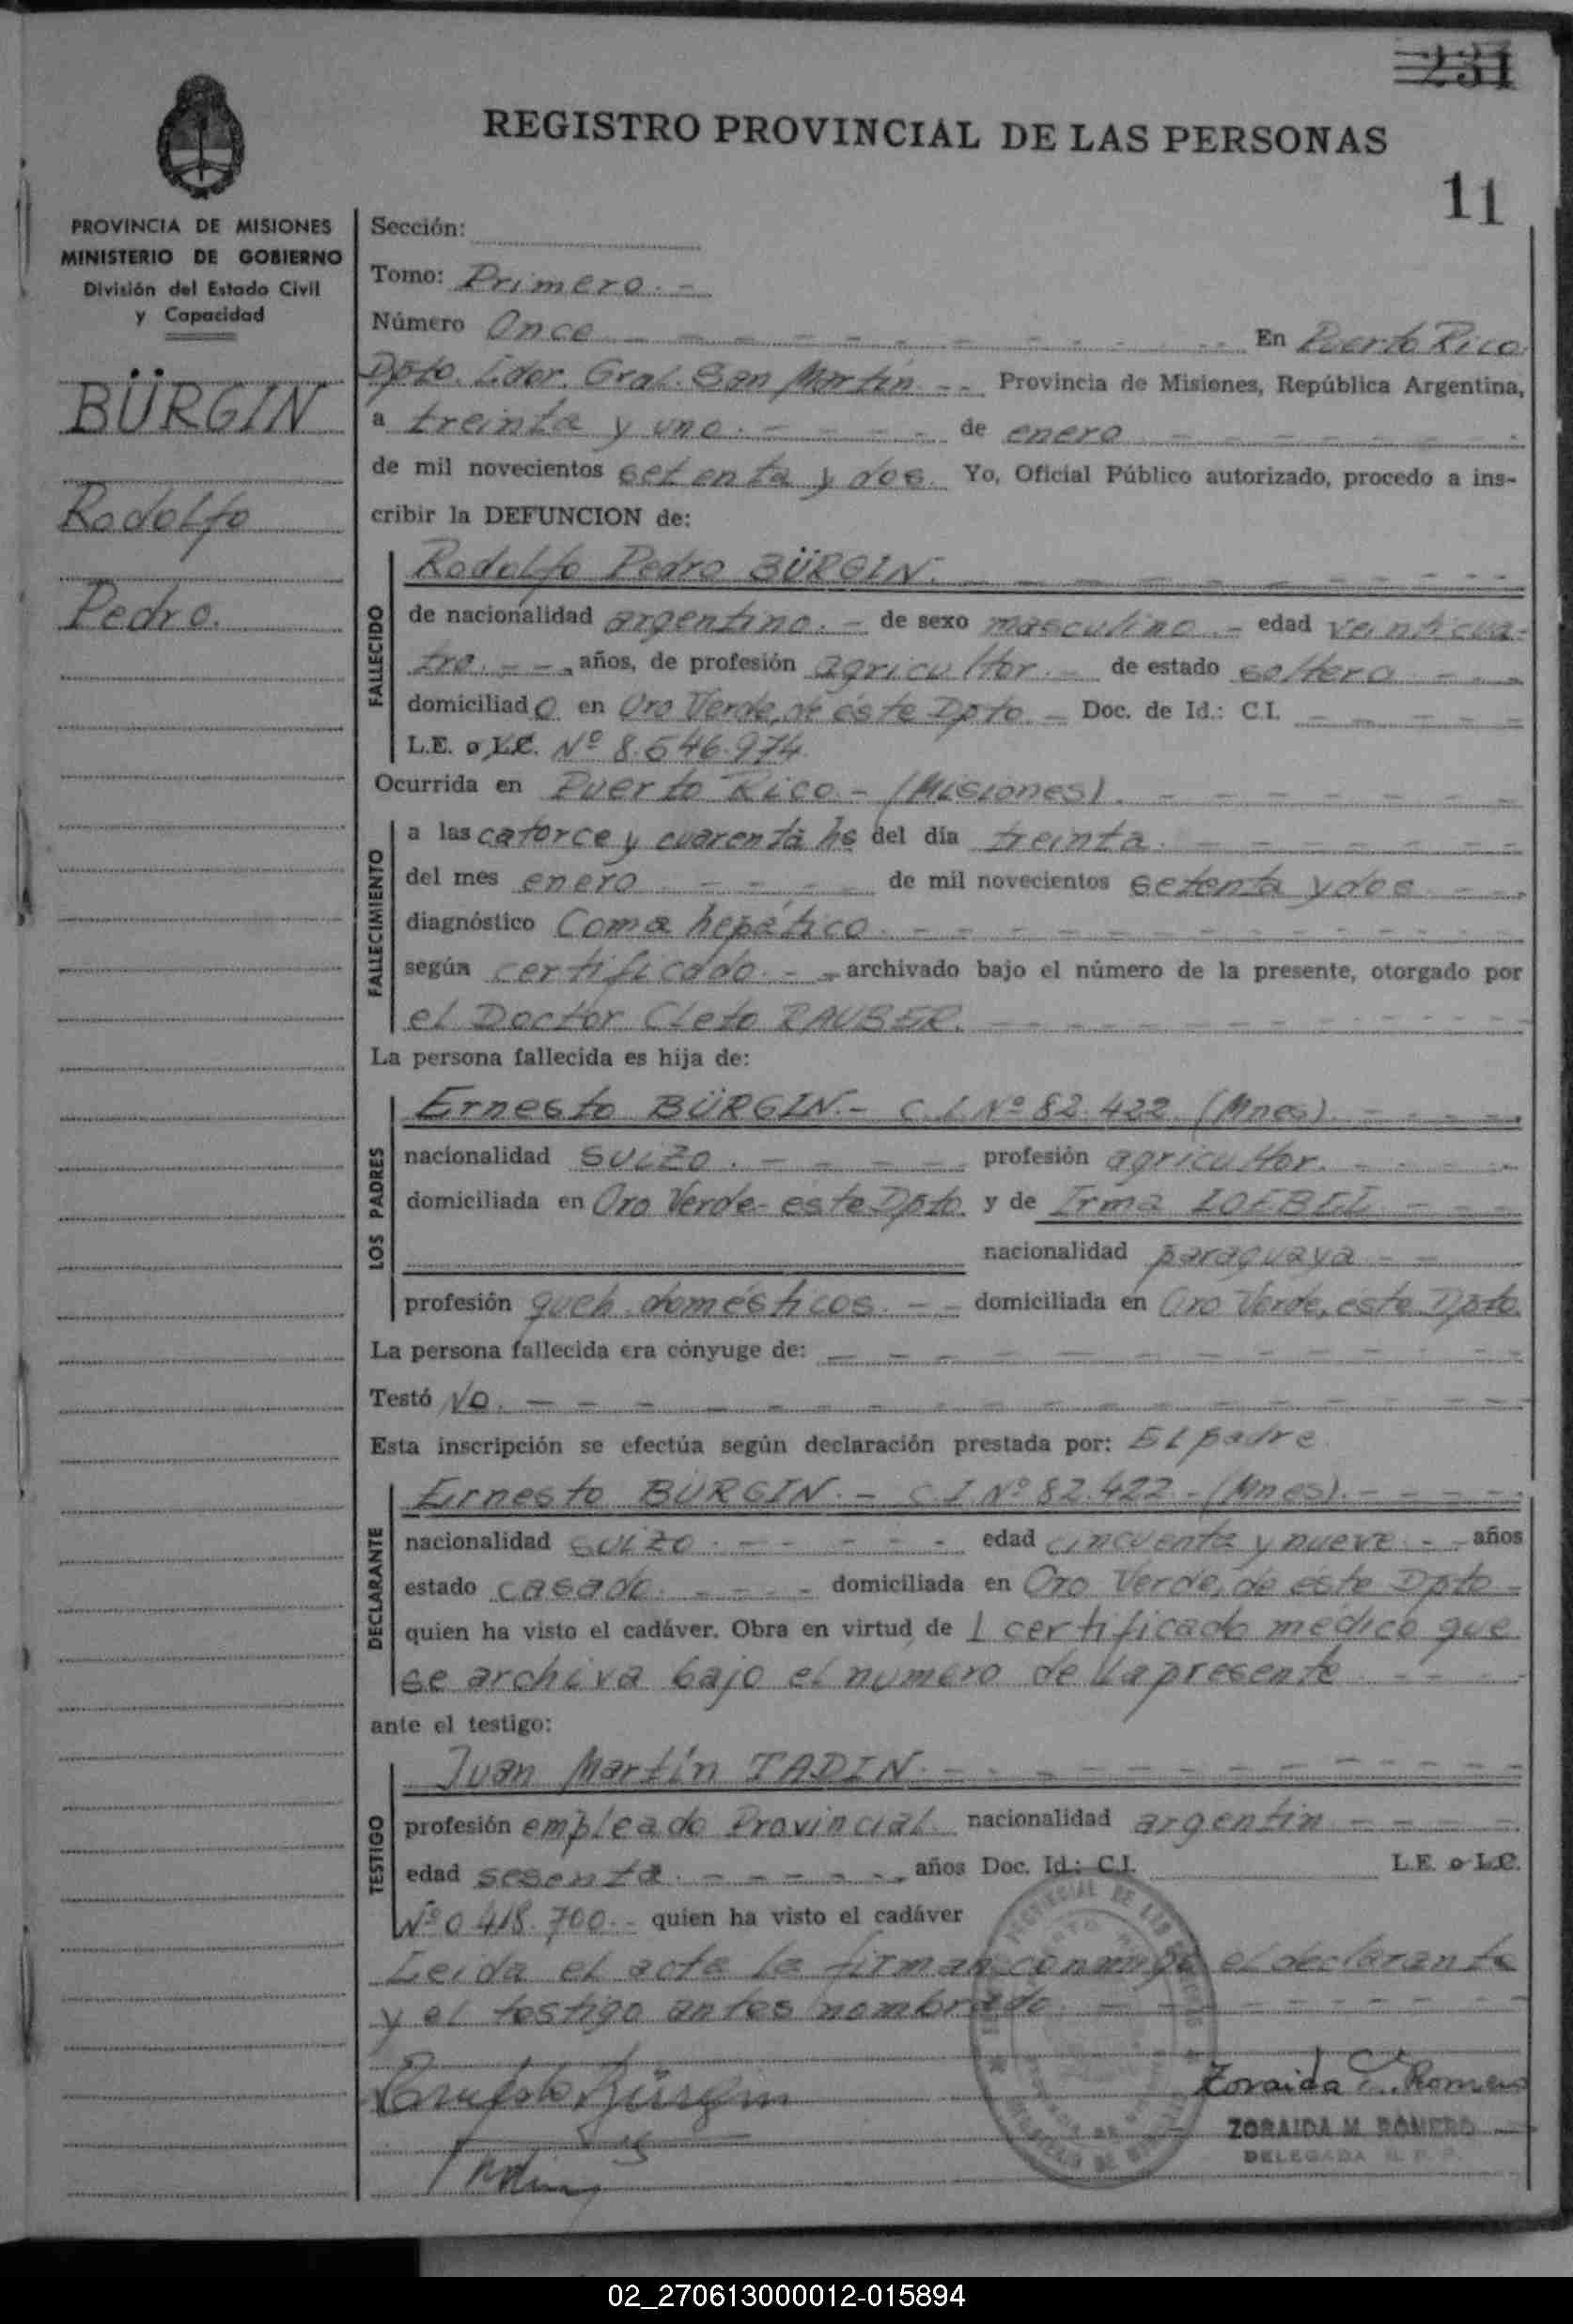 231
REGISTRO PROVINCIAL DE LAS PERSONAS
11
PROVINCIA DE MISIONES
MINISTERIO DE GOBIERNO
División del Estado Civil
y Capacidad
BÜRGIN
Rodolfo
Pedro.
Sección:
Tomo: Primero. -
Número Once - - - - En Puerto Rico.
Dpto. Lder. Gral. San Martín. - - Provincia de Misiones, República Argentina,
a treinta y uno. - - - - de enero - - - -
de mil novecientos setenta y dos. Yo, Oficial Público autorizado, procedo a ins-
cribir la DEFUNCION de:
FALLECIDO
Rodolfo Pedro BÜRGIN. - - - -
de nacionalidad argentino. - de sexo masculino. - edad veinticua-
tro. - - años, de profesión agricultor. - de estado soltero - - -
domiciliado en Oro Verde, de éste Dpto. - Doc. de Id.: C.I. - - - -
L.E. o L.C. Nº 8.546.974.
Ocurrida en Puerto Rico. - (Misiones). - - - -
FALLECIMIENTO
a las catorce y cuarenta hs del día treinta. - - - -
del mes enero - - - - de mil novecientos setenta y dos - - -
diagnóstico Coma hepático. - - - -
según certificado. - - archivado bajo el número de la presente, otorgado por
el Doctor Cleto RAUBER. - - - -
La persona fallecida es hija de:
LOS PADRES
Ernesto BÜRGIN. - C.I. Nº 82.422 (Mnes). - - - -
nacionalidad suizo. - - - - profesión agricultor. - - - -
domiciliada en Oro Verde- este Dpto. y de Irma LOEBEL - - -
nacionalidad paraguaya - -
profesión queh. domésticos. - - domiciliada en Oro Verde, este Dpto.
La persona fallecida era cónyuge de: - - - -
Testó No. - - - -
Esta inscripción se efectúa según declaración prestada por: El padre
DECLARANTE
Ernesto BÜRGIN. - C.I. Nº 82.422 - (Mnes). - - - -
nacionalidad suizo. - - - - edad cincuenta y nueve - - años
estado casado. - - - - domiciliada en Oro Verde, de este Dpto -
quien ha visto el cadáver. Obra en virtud de 1 certificado médico que
se archiva bajo el número de la presente - - - -
ante el testigo:
TESTIGO
Juan Martín TADIN. - - - -
profesión empleado Provincial. nacionalidad argentin - - - -
edad sesenta. - - - - años Doc. Id.: C.I. L.E. o L.C.
Nº 0.418.700. - quien ha visto el cadáver
Leida el acta la firman conmigo el declarante
y el testigo antes nombrado. - - - -
Ernesto Bürgin
Zoraida Romero
ZORAIDA M. ROMERO
DELEGADA R. P. P.
Tadin
02_270613000012-015894